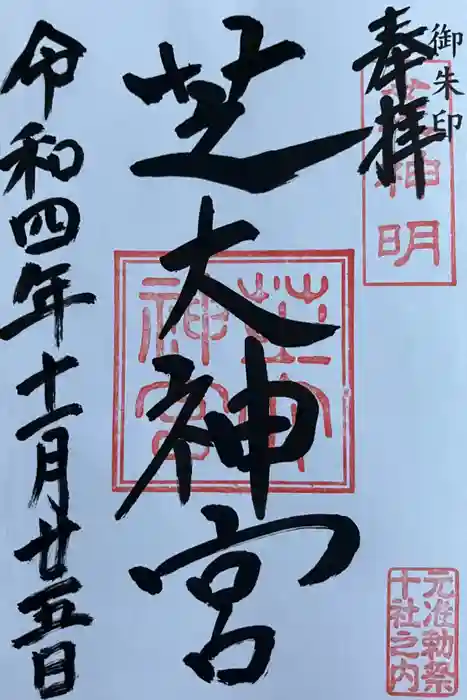 御朱印
奉拝
芝神明
芝大神宮
芝大神宮
元准勅祭
十社之内
令和四年十一月廿五日